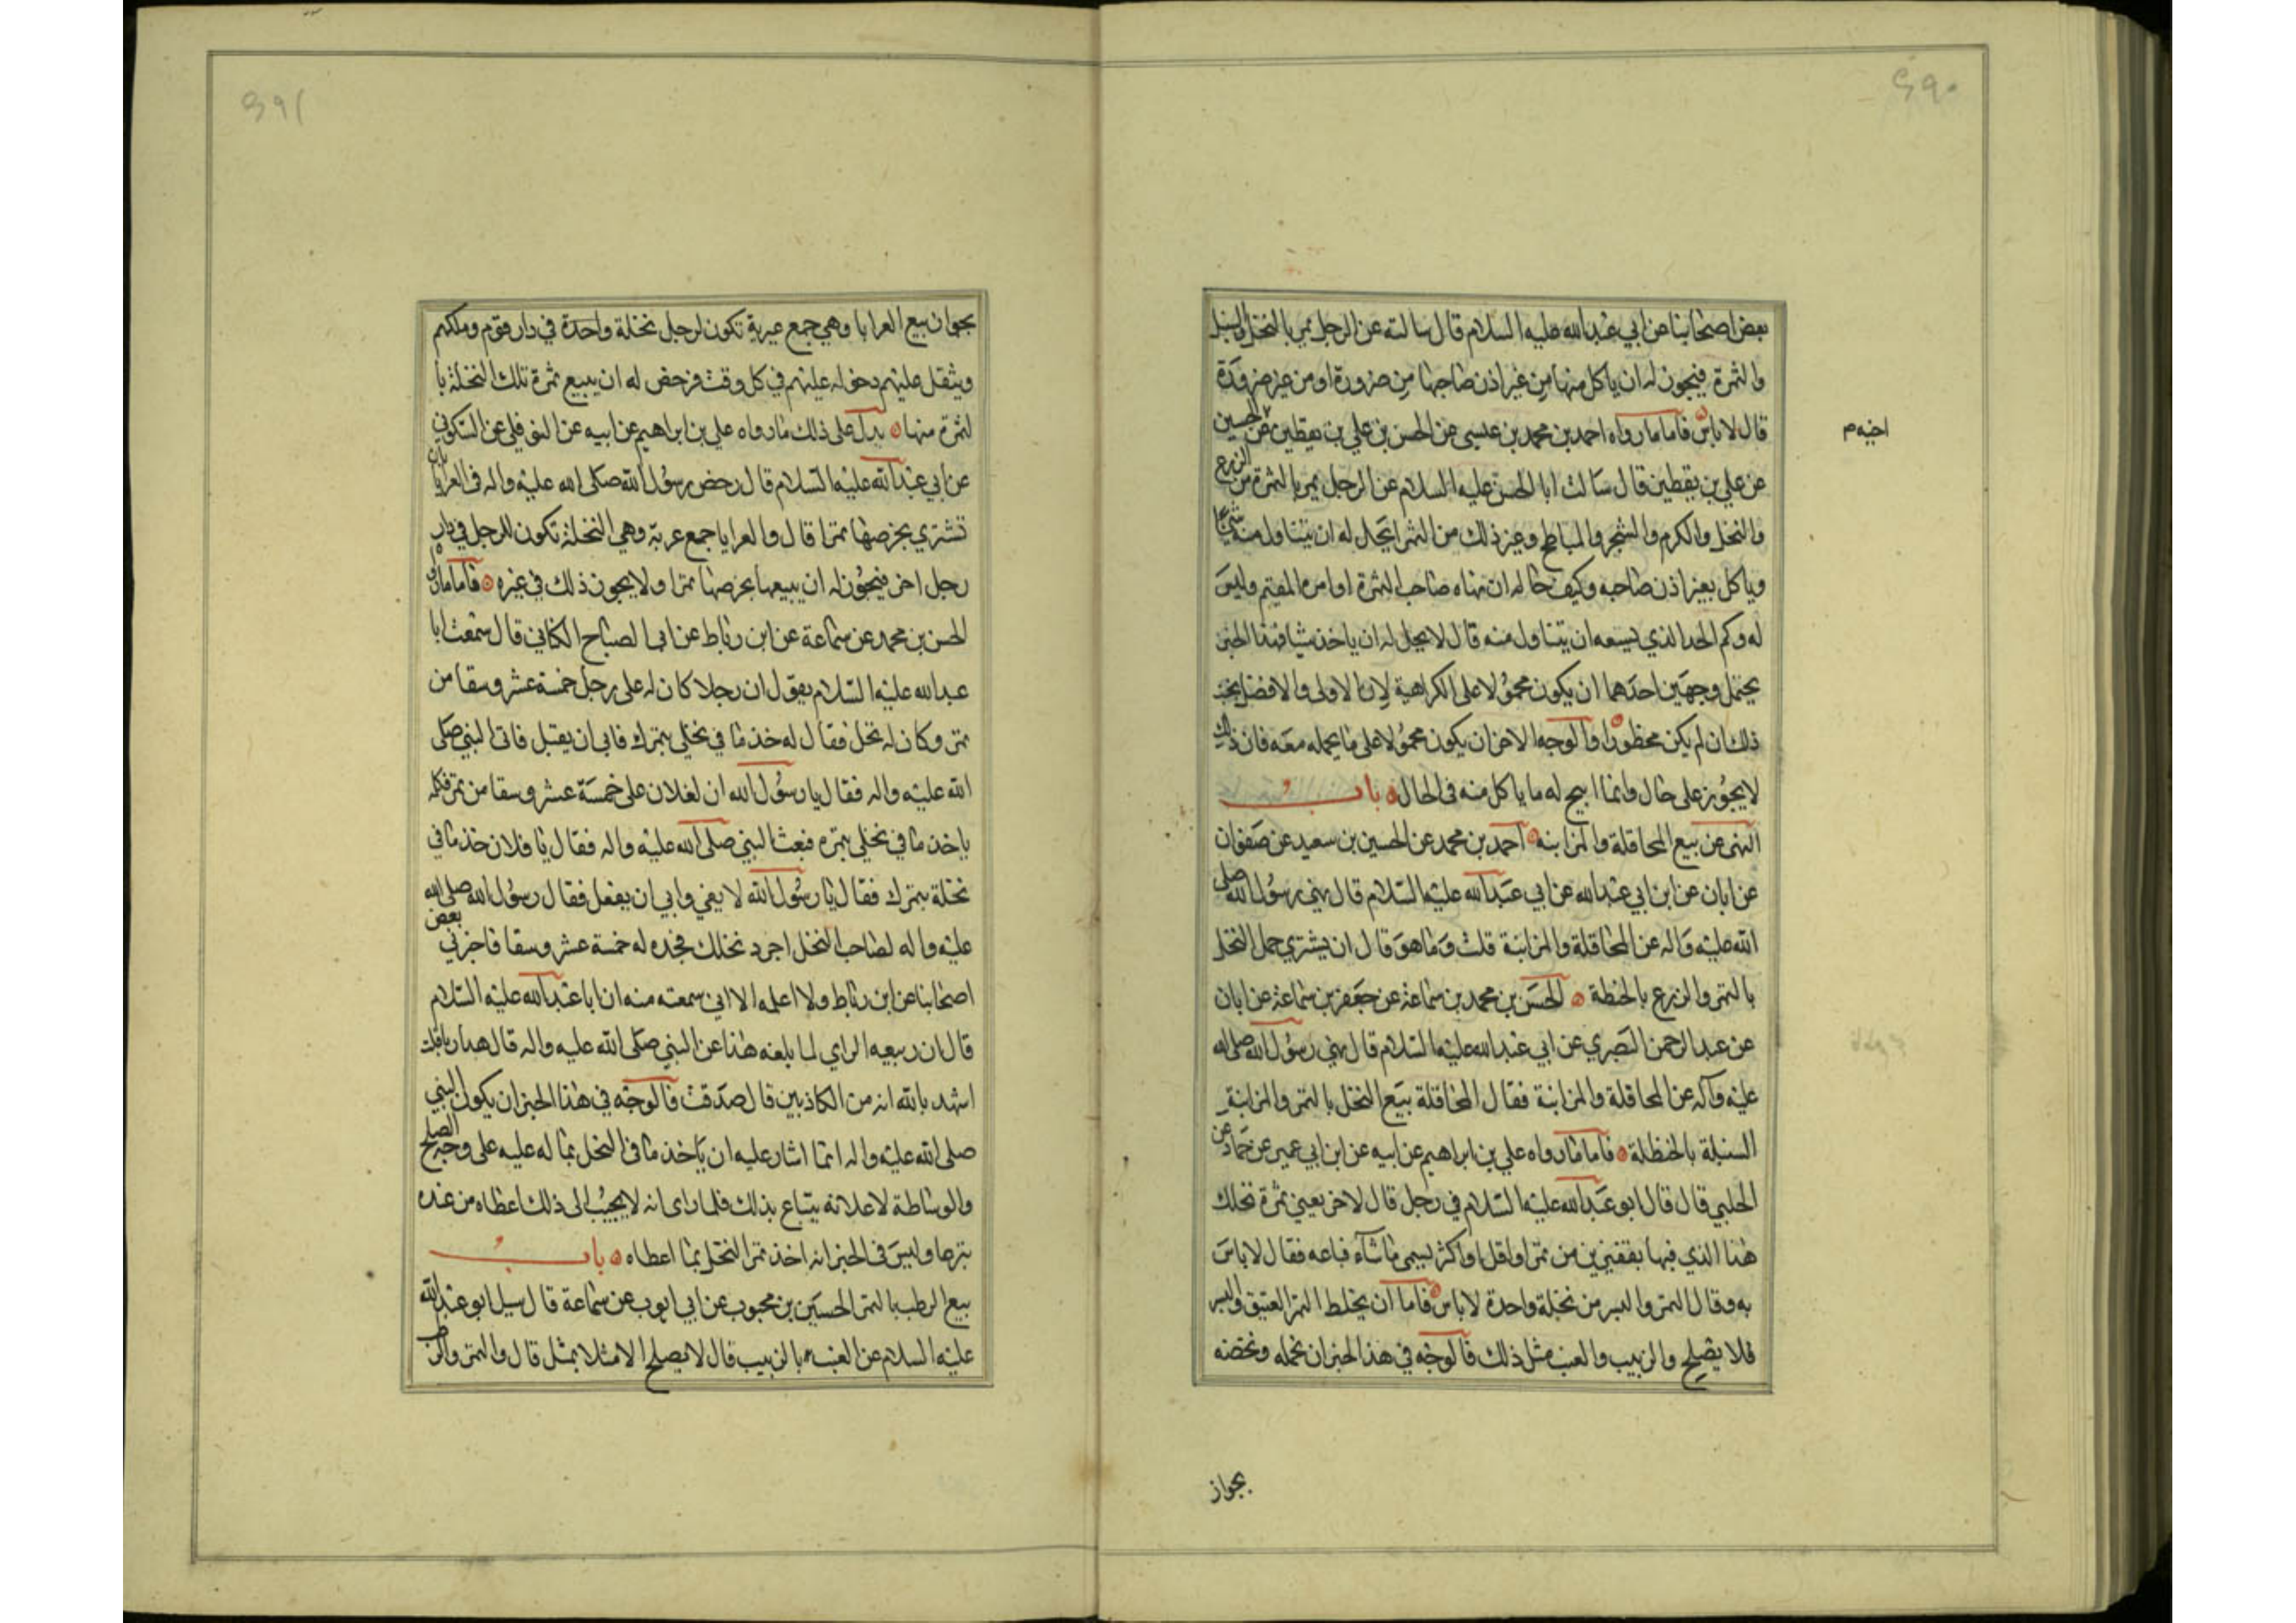 بعض اصحابنا عن ابي عبدالله عليه السلام قال سالته عن الرجل يمر بالنخل والسنبل
والثمرة فيجوز له ان ياكل منها من غير اذن صاحبها من ضرورة او من غير ضرورة
قال لا باس فاما ما رواه احمد بن محمد بن عيسى عن الحسن بن علي بن يقطين عن الحسين
اخيه م
عن علي بن يقطين قال سالت ابا الحسن عليه السلام عن الرجل يمر بالثمرة من الزرع
والنخل والكرم والشجر والمباطخ وغير ذلك من الثمر ايحل له ان يتناول منه شيئا
وياكل بغير اذن صاحبه وكيف حاله ان نهاه صاحب الثمرة او امره القيم وليس
له وكم الحد الذي يسعه ان يتناول منه قال لا يحل له ان ياخذ شيا فهذا الخبر
يحتمل وجهين احدهما ان يكون محمولا على الكراهية لان الاولى والافضل تجنب
ذلك ان لم يكن محظورا والوجه الاخر ان يكون محمولا على ما يحمله معه فان ذلك
لا يجوز على حال وانما ابيح له ما ياكل منه في الحال باب
النهى عن بيع المحاقلة والمزابنه احمد بن محمد عن الحسين بن سعيد عن صفوان
عن ابان عن ابن ابي عبدالله عن ابي عبدالله عليه السلام قال نهى رسول الله صلى
الله عليه واله عن المحاقلة والمزابنة قلت وما هو قال ان يشتري حمل النخل
بالتمر والزرع بالحنطة الحسن بن محمد بن سماعة عن جعفر بن سماعة عن ابان
عن عبد الرحمن البصري عن ابي عبدالله عليه السلام قال نهى رسول الله صلى الله
عليه وآله عن المحاقلة والمزابنة فقال المحاقلة بيع النخل بالتمر والمزابنة
السنبلة بالحنطة فاما ما رواه علي بن ابراهيم عن ابيه عن ابن ابي عمير عن حماد عن
الحلبي قال قال ابو عبدالله عليه السلام في رجل قال لاخر بعني ثمرة نخلك
هذا الذي فيها بقفيزين من تمر او اقل او اكثر يسمى ما شآء فباعه فقال لا باس
به وقال التمر والبسر من نخلة واحدة لا باس فاما ان يخلط التمر العتيق والبسر
فلا يصلح والزبيب والعنب مثل ذلك فالوجه في هذا الخبر ان نحمله ونخصه
بجواز
بجواز بيع العرايا وهي جمع عرية تكون لرجل نخلة واحدة في دار قوم وملكهم
ويثقل عليهم دخوله عليهم في كل وقت فرخص له ان يبيع ثمرة تلك النخلة با
لثمرة منها يدل على ذلك ما رواه علي بن ابراهيم عن ابيه عن النوفلي عن السكوني
عن ابي عبدالله عليه السلام قال رخص رسول الله صلى الله عليه واله في العرايا بان
تشتري بخرصها تمرا قال والعرايا جمع عرية وهي النخلة تكون للرجل في دار
رجل اخر فيجوز له ان يبيعها بخرصها تمرا ولا يجوز ذلك في غيره فاما ما رواه
الحسن بن محمد عن سماعة عن ابن رباط عن ابى الصباح الكناني قال سمعت ابا
عبدالله عليه السلام يقول ان رجلا كان له على رجل خمسة عشر وسقا من
تمر وكان له نخل فقال له خذ ما في نخلي بتمرك فابى ان يقبل فاتى النبي صلى
الله عليه واله فقال يا رسول الله ان لفلان على خمسة عشر وسقا من تمر فكلمه
ياخذ ما في نخلي بتمره فبعث النبي صلى الله عليه واله فقال يا فلان خذ ما في
نخلة بتمرك فقال يا رسول الله لا يفي وابى ان يفعل فقال رسول الله صلى الله
عليه واله لصاحب النخل اجرد نخلك فجده له خمسة عشر وسقا فاخبرني بعض
اصحابنا عن ابن رباط ولا اعلم الا اني سمعته منه ان ابا عبدالله عليه السلام
قال ان ربيعه الراي لما بلغه هذا عن النبي صلى الله عليه واله قال هذا ربا قلت
اشهد بالله انه من الكاذبين قال صدقت فالوجه في هذا الخبر ان يكون النبي
صلى الله عليه واله انما اشار عليه ان ياخذ ما في النخل بما له عليه على وجه الصلح
والوساطة لا على انه يبتاع بذلك فلما راى انه لا يجيب الى ذلك اعطاه من عنده
تبرعا وليس في الخبر انه اخذ تمر النخل بما اعطاه باب
بيع الرطب بالتمر الحسين بن محبوب عن ابي ايوب عن سماعة قال سيل ابو عبدالله
عليه السلام عن العنب بالزبيب قال لا يصلح الا مثلا بمثل قال والتمر والرطب